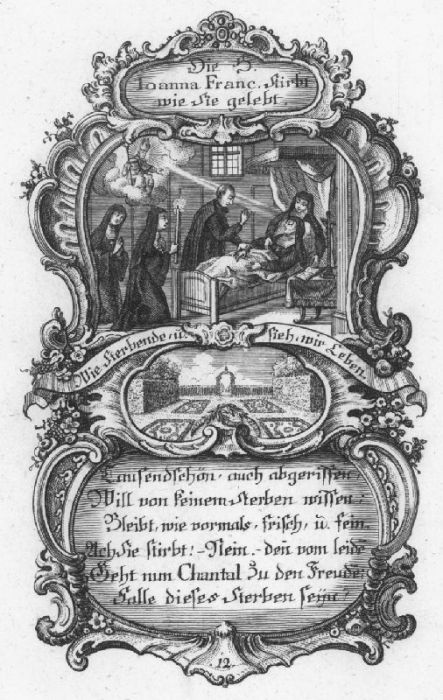 Die H.
Ioanna Franc. stirbt
wie sie gelebt.
Als sterbende, u: sieh, wir Leben.
Tausendschön, auch abgerissen,
Will von keinem sterben wissen:
Bleibt, wie vormals, frisch, u. fein.
Ach sie stirbt! - Nein. - deñ vom leide
Geht nun Chantal Zu den Freude:
Solle dieses sterben seyn?
12.